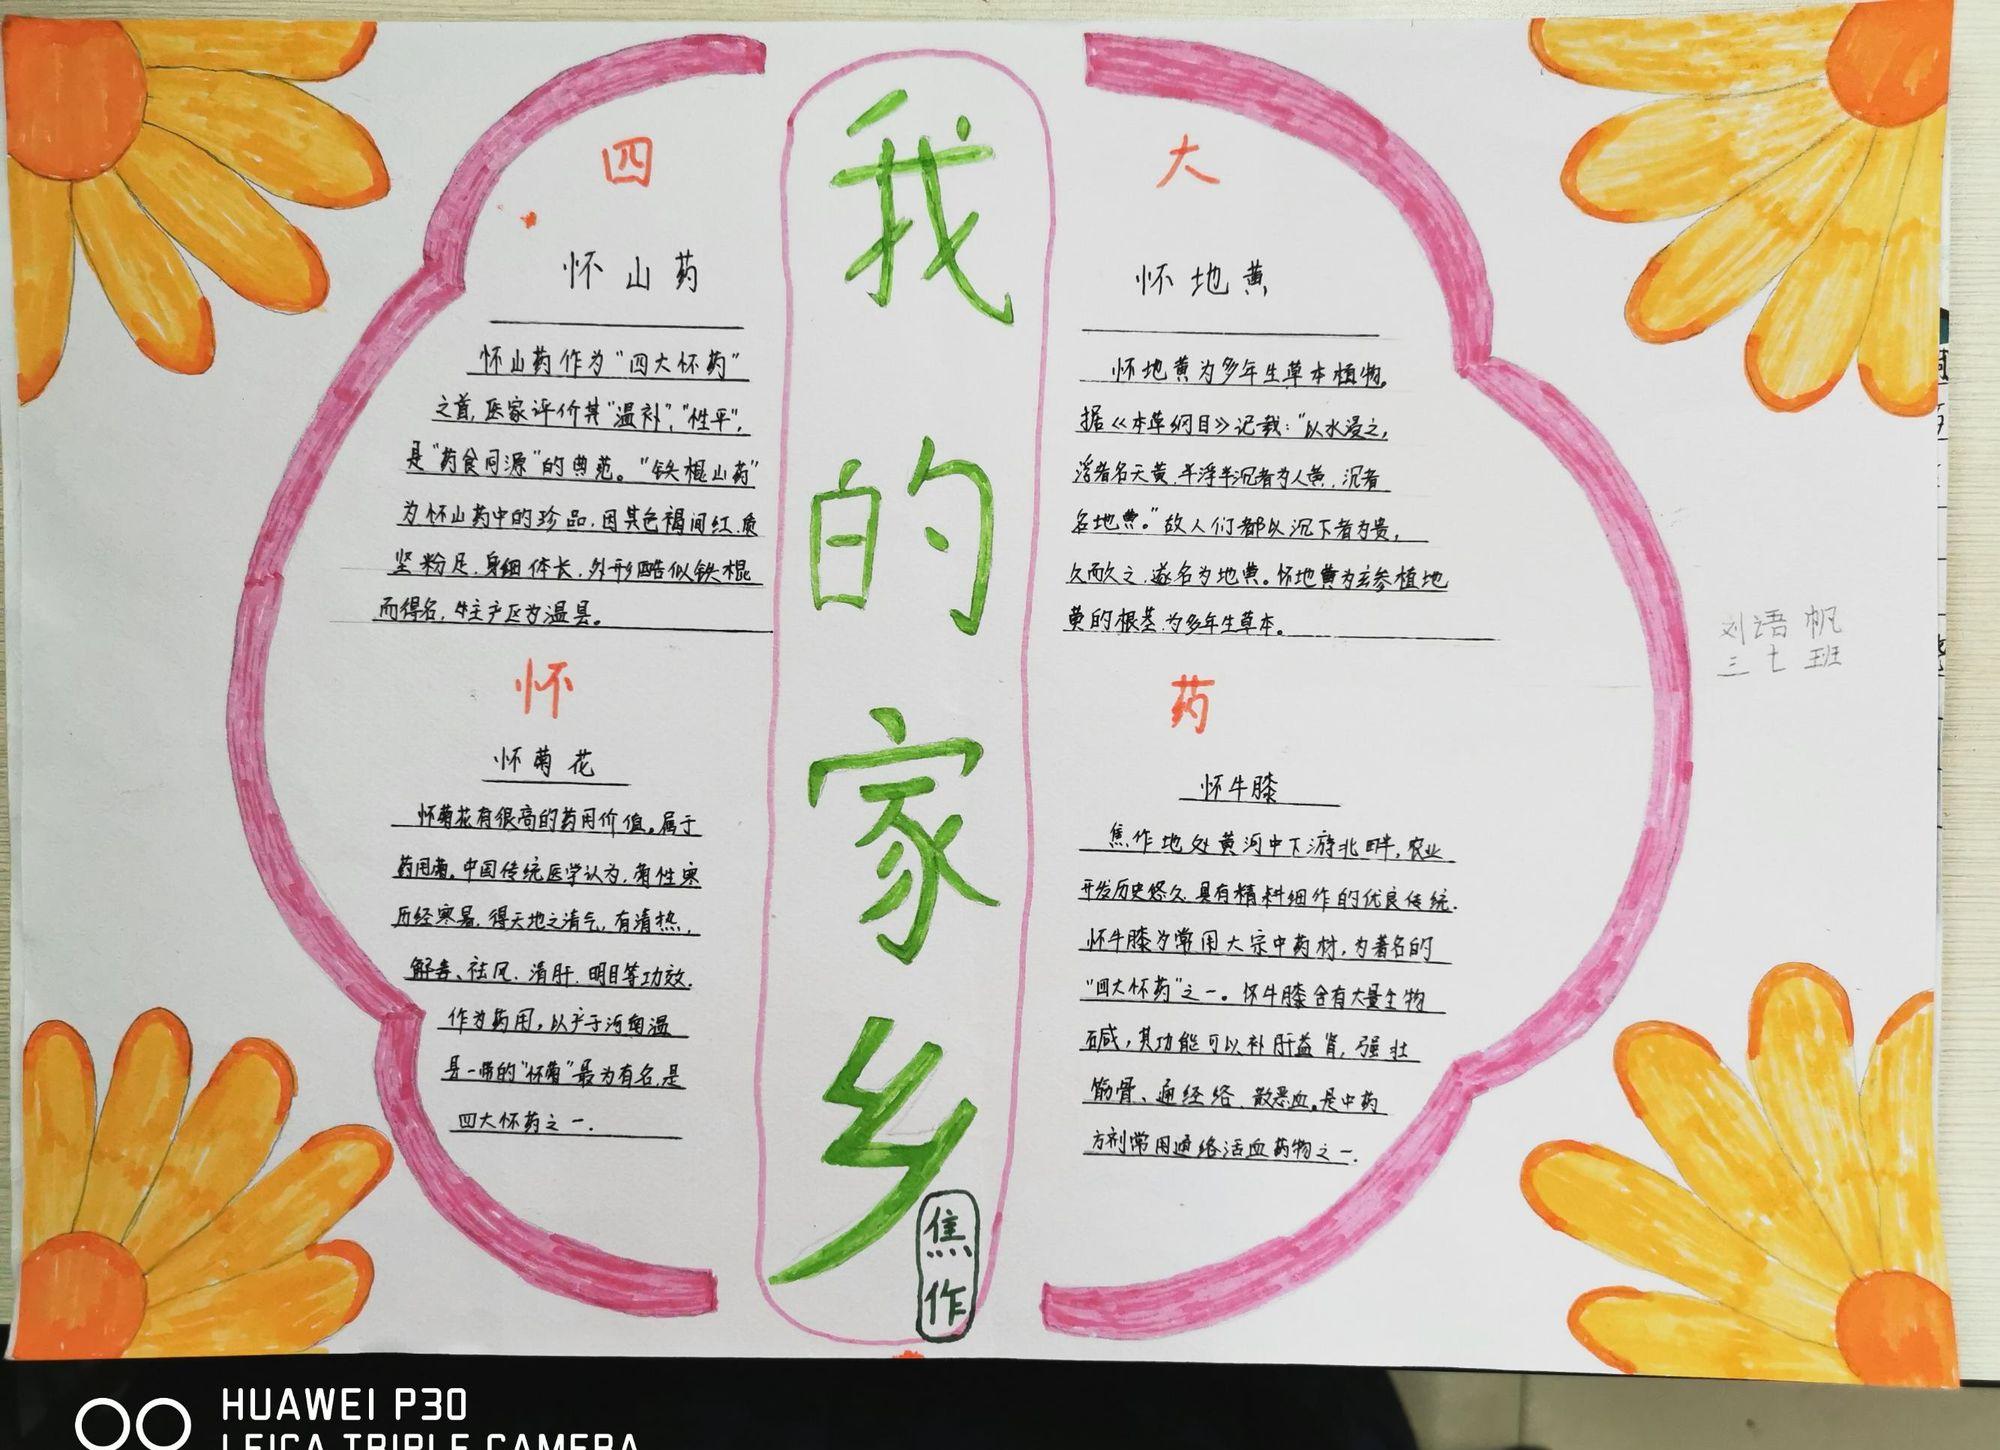 我的家乡
焦作
四
怀山药
怀山药作为“四大怀药”
之首,医家评价其“温补”,“性平”,
是“药食同源”的典范。“铁棍山药”
为怀山药中的珍品,因其色褐间红,质
坚粉足,身细体长,外形酷似铁棍
而得名,生产区为温县。
大
怀地黄
怀地黄为多年生草本植物。
据《本草纲目》记载:“以水浸之,
浮者名天黄,半浮半沉者为人黄,沉者
名地黄。”故人们都以沉下者为贵,
久而久之,遂名为地黄。怀地黄为玄参植地
黄的根茎,为多年生草本。
怀
怀菊花
怀菊花有很高的药用价值。属于
药用菊。中国传统医学认为,菊性寒
历经寒暑,得天地之清气,有清热,
解毒、祛风、清肝、明目等功效.
作为药用,以产于河南温
县一带的“怀菊”最为有名,是
四大怀药之一.
药
怀牛膝
焦作地处黄河中下游北畔,农业
开发历史悠久,具有精料细作的优良传统.
怀牛膝为常用大宗中药材,为著名的
“四大怀药”之一。怀牛膝含有大量生物
碱,其功能可以补肝益肾,强壮
筋骨、通经络、散恶血。是中药
方剂常用通络活血药物之一.
刘语帆
三七班
HUAWEI P30
LEICA TRIPLE CAMERA